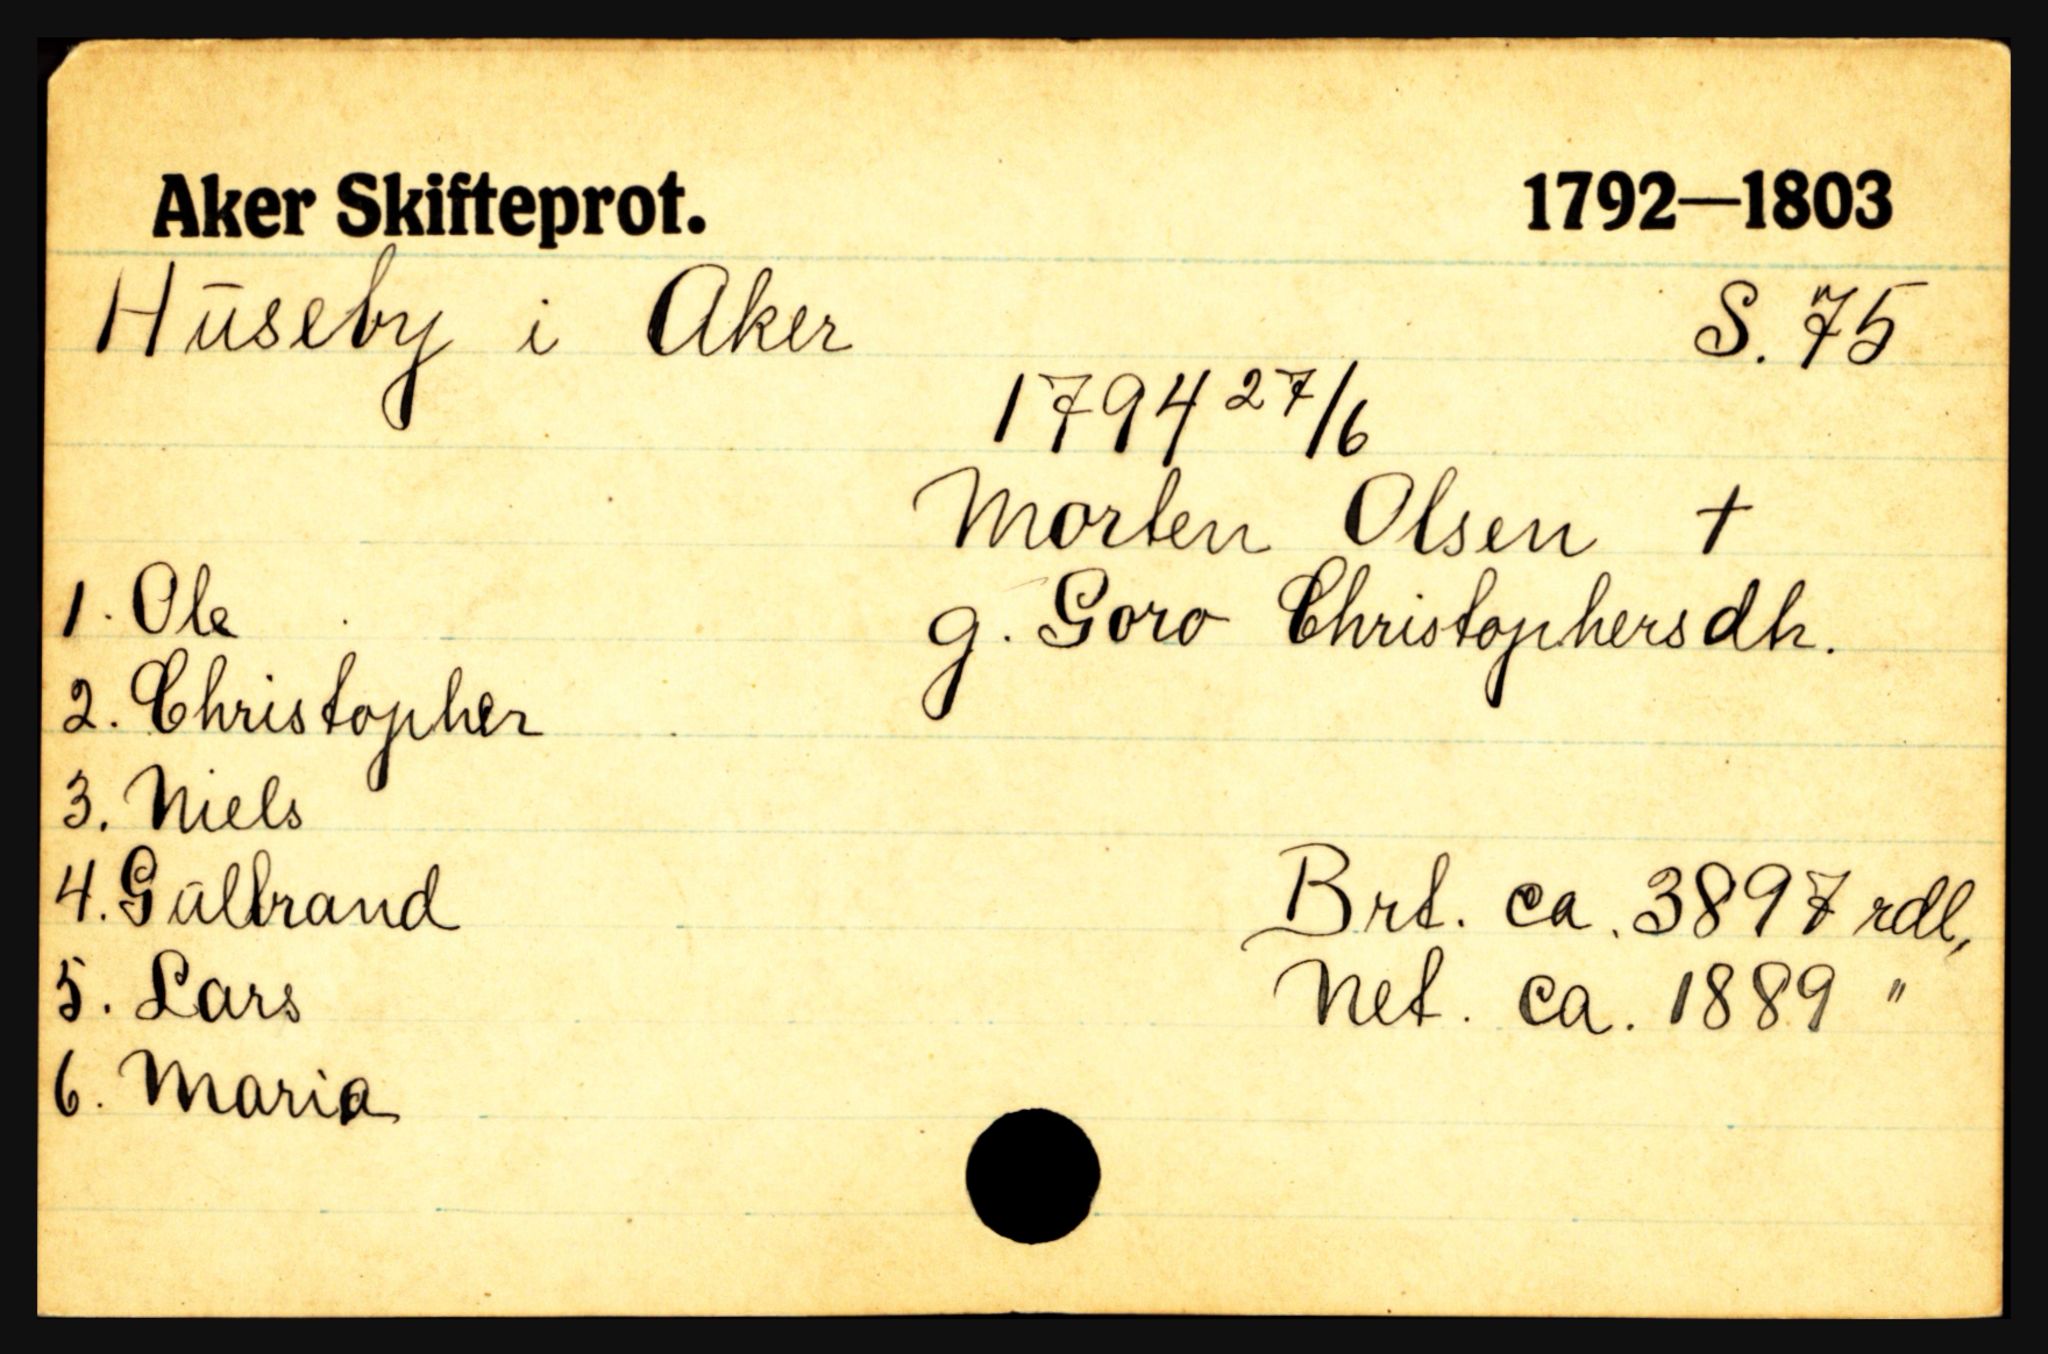 Aker Skifteprot. 1792—1803
Hūseby i Aker S. 75
1794 27/6
Morten Olsen †
1. Ole g. Goro Christophersdh.
2. Christopher
3. Niels
4. Gūlbrand Brt. ca. 3897 rdl,
5. Lars Net. ca. 1889 "
6. Maria